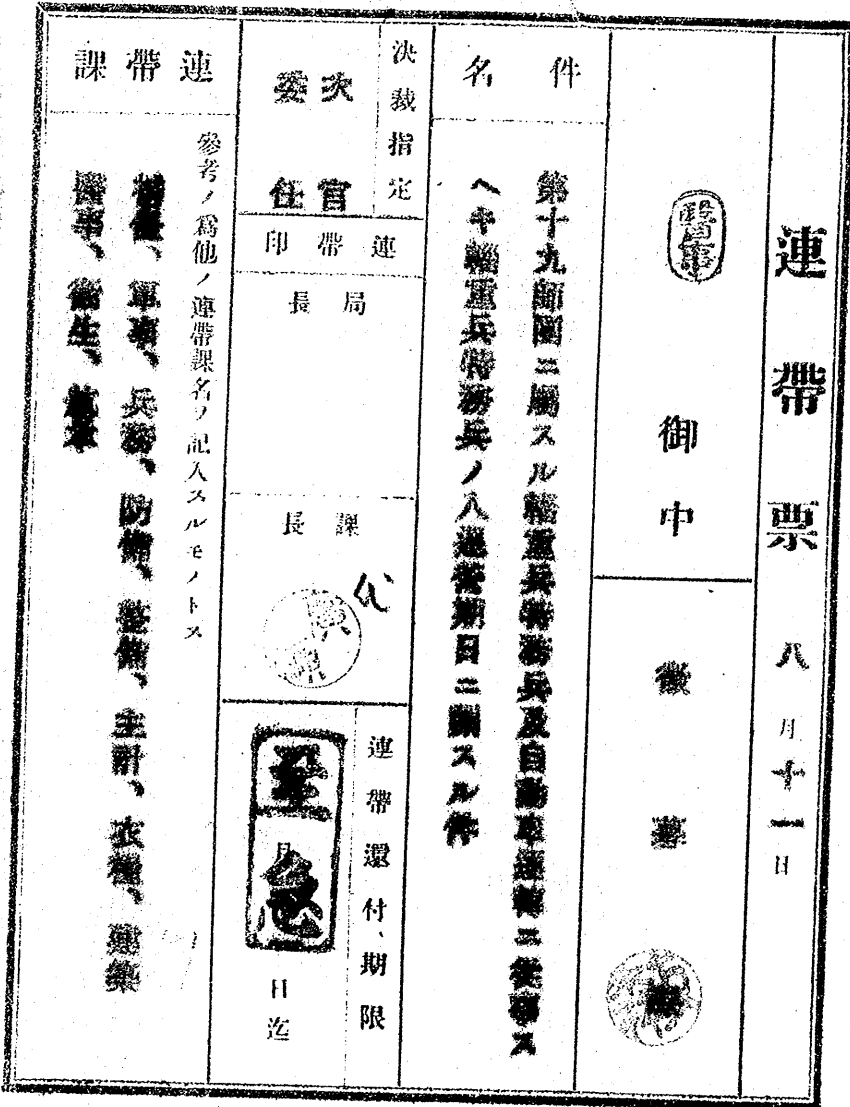 連帶票 八月十一日
醫事 御中
徴募
件名
第十九師團ニ屬スル輜重兵特務兵及自動車運轉ニ從事ス
ヘキ輜重兵特務兵ノ入退營期日ニ關スル件
決裁指定
次官
委任
連帶印
局長
課長
代
連帶還付期限
至急
月
日迄
連帶課
參考ノ爲他ノ連帶課名ヲ記入スルモノトス
補任、軍事、兵務、防備、整備、主計、衣糧、建築
醫事、衞生、航本